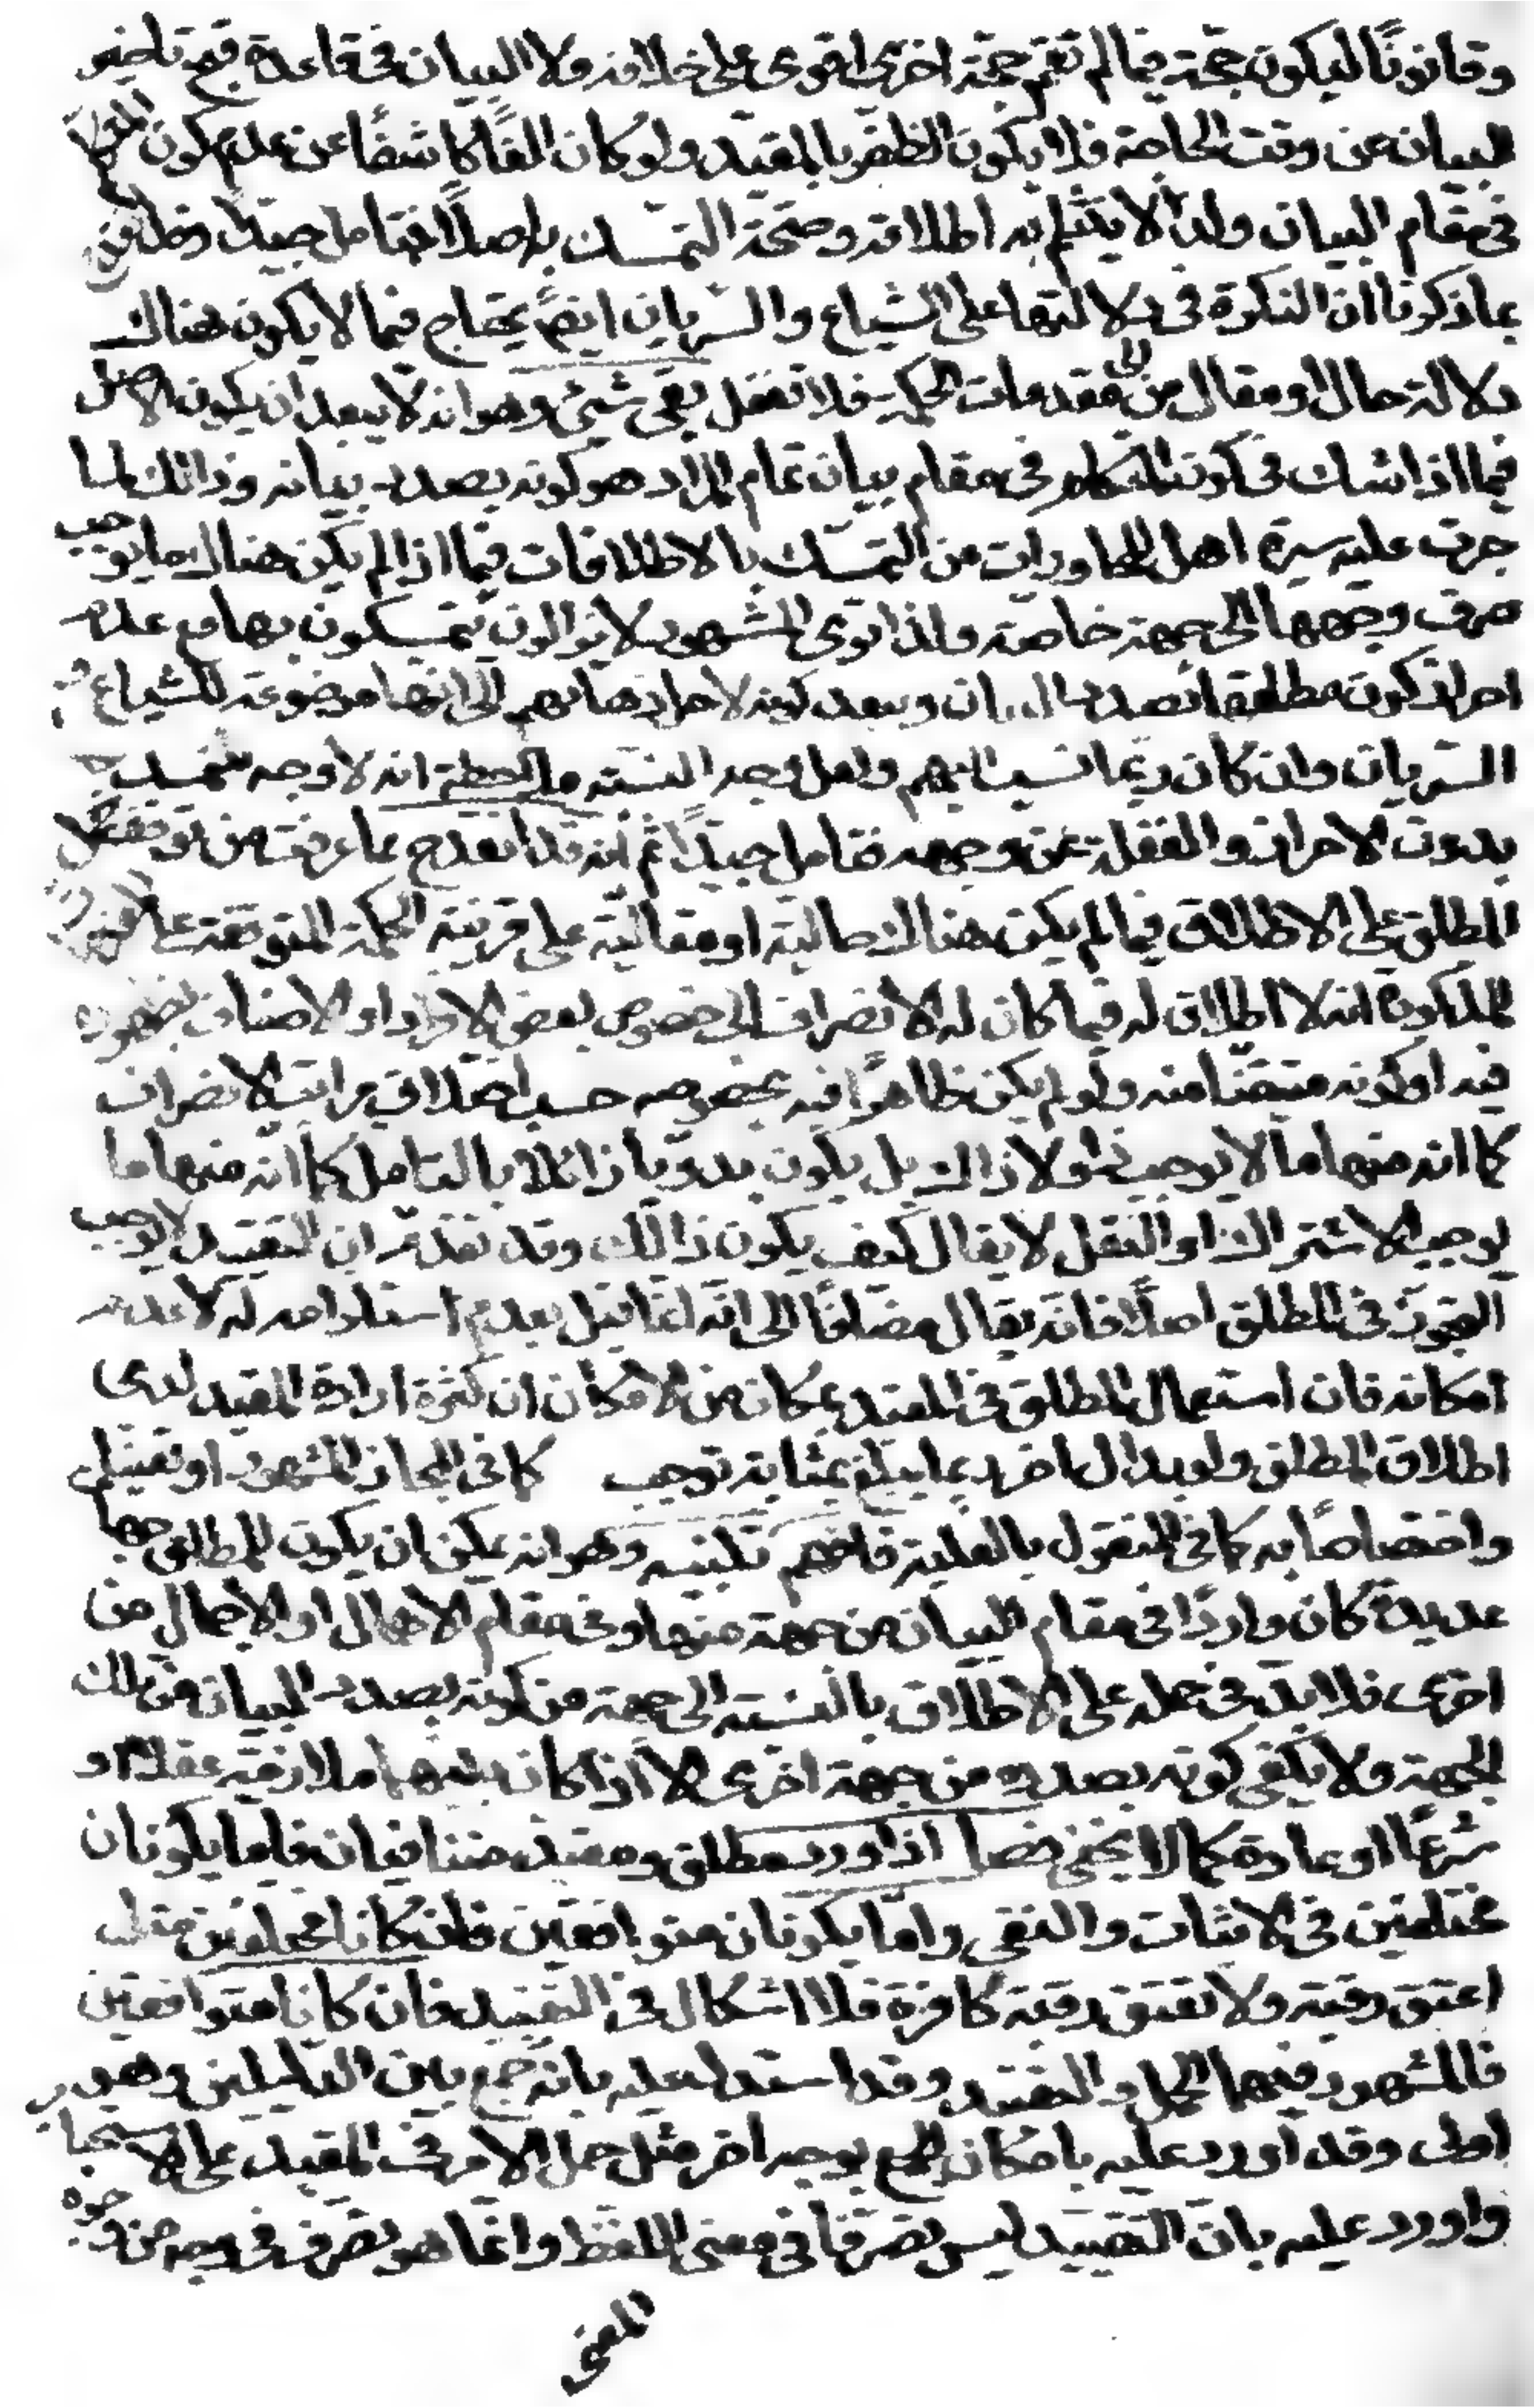 وقانونًا ليكون حجة فيما لم تقم حجة اخرى اقوى على خلافه ولا البيان فى قاعدة قبح تاخير
البيان عن وقت الحاجة فلا يكون الظفر بالمقيد ولو كان الفًا كاشفًا عن عدم كون المتكلم
فى مقام البيان ولذا لا ينثلم به اطلاقه وصحة التمسك به اصلًا فتامل جيدًا وقد
بما ذكرنا ان النكرة فى دلالتها على الشياع والسريان ايضً يحتاج فيما لا يكون هناك
دلالة حال او مقال من الى مقدمات الحكمة فلا تغفل بقى شيئ وهو انه لا يبعد ان يكون الاصل
فيما اذا شك فى كون المتكلم فى مقام بيان تمام المراد هو كونه بصدد بيانه وذالك لما
جرت عليه سيرة اهل المحاورات من التمسك بالاطلاقات فيما اذا لم يكن هناك ما يوجب
صرف وجهها الى جهة خاصة ولذا ترى المشهور لا يزالون يتمسكون بها مع عدم
احراز كون مطلقها بصدد البيان وبعد كونه لاجل ذهابهم الى انها موضوعة للشياع و
السريان وان كان ربما نسب اليهم ولعل وجه النسبة ملاحظة انه لا وجه للتمسك بها
بدون الاحراز والغفلة عن وجهه فتامل جيدًا ثم انه قد انقدح بما عرفت من توقف حمل
المطلق على الاطلاق فيما لم يكن هناك حالية او مقالية على قرينة الحكمة المتوقفة على
المذكورة انه لا اطلاق له فيما كان له الانصراف الى خصوص بعض الافراد او الاصناف لظهوره
فيه او كونه متيقنا منه ولو لم يكن ظاهرًا فيه بخصوصه حسب اختلاف مراتب الانصراف
كما انه منها ما لا يوجب ذا ولا ذاك بل يكون بدويا زائلا بالتامل كما انه منها ما
يوجب الاشتراك او النقل لا يقال كيف يكون ذالك وقد تقدم ان التقييد لا يوجب
التجوز فى المطلق اصلًا فانه يقال مضافًا الى انه انما قيل بعدم استلزامه له لا عدم
امكانه فان استعمال المطلق فى المقيد بمكان من الامكان ان كثرة ارادة المقيد لدى
اطلاق المطلق ولو بدال اخر ربما يبلغ بمثابة توجب كما فى المجاز المشهور او تعيينا
واختصاصًا به كما فى المنقول بالغلبة فافهم تنبيه وهو انه يمكن ان يكون للمطلق جهات
عديدة كان واردًا فى مقام البيان من جهة منها وفى مقام الاهمال او الاجمال من
اخرى فلا بد فى حمله على الاطلاق بالنسبة الى جهة من كونه بصدد البيان من تلك
الجهة ولا يكفى كونه بصدده من جهة اخرى الا اذا كان بينهما ملازمة عقلًا او
شرعًا او عادة كما لا يخفى فصل اذا ورد مطلق ومقيد متنافيان فاما يكونان
مختلفين فى الاثبات والنفى واما يكونان متوافقين فان كانا مختلفين مثل
اعتق رقبة ولا تعتق رقبة كافرة فلا اشكال فى التقييد فان كانا متوافقين
فالمشهور فيهما الحمل والتقييد وقد استدل عليه بانه جمع بين الدليلين وهو
اولى وقد اورد عليه بامكان الجمع بوجه اخر مثل حمل الامر فى المقيد على الاستحباب
واورد عليه بان التقييد ليس تصرفًا فى معنى اللفظ وانما هو تصرف فى وجه من وجوه
المعنى